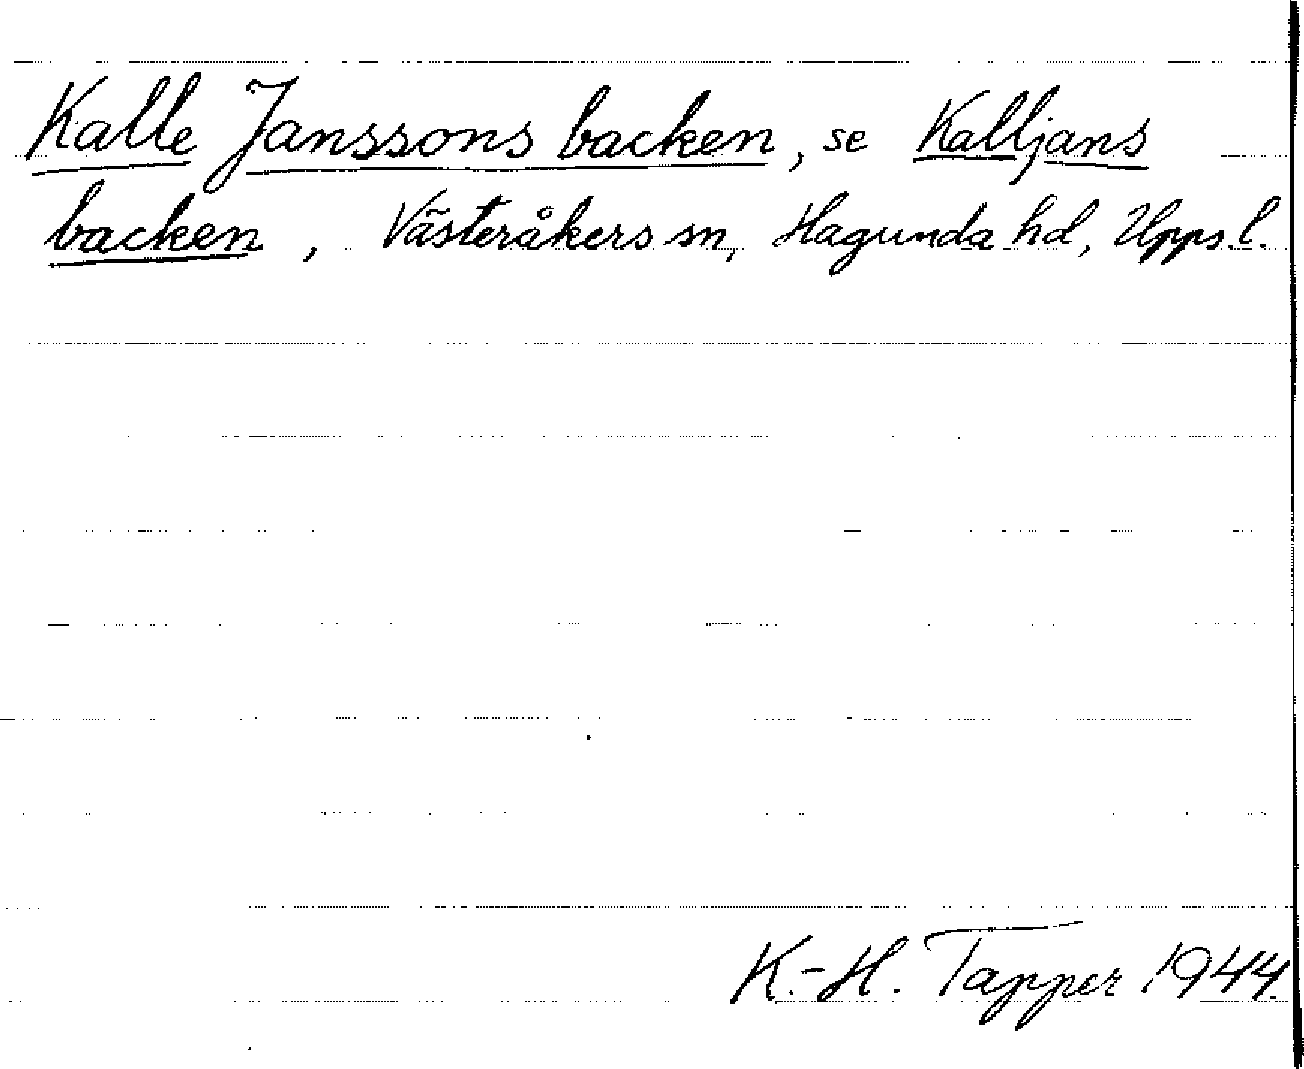 Kalle Janssons backen, se Kalljans
backen, Västeråkers sn, Hagunda hd, Upps. l.
K.-H. Tapper 1944.